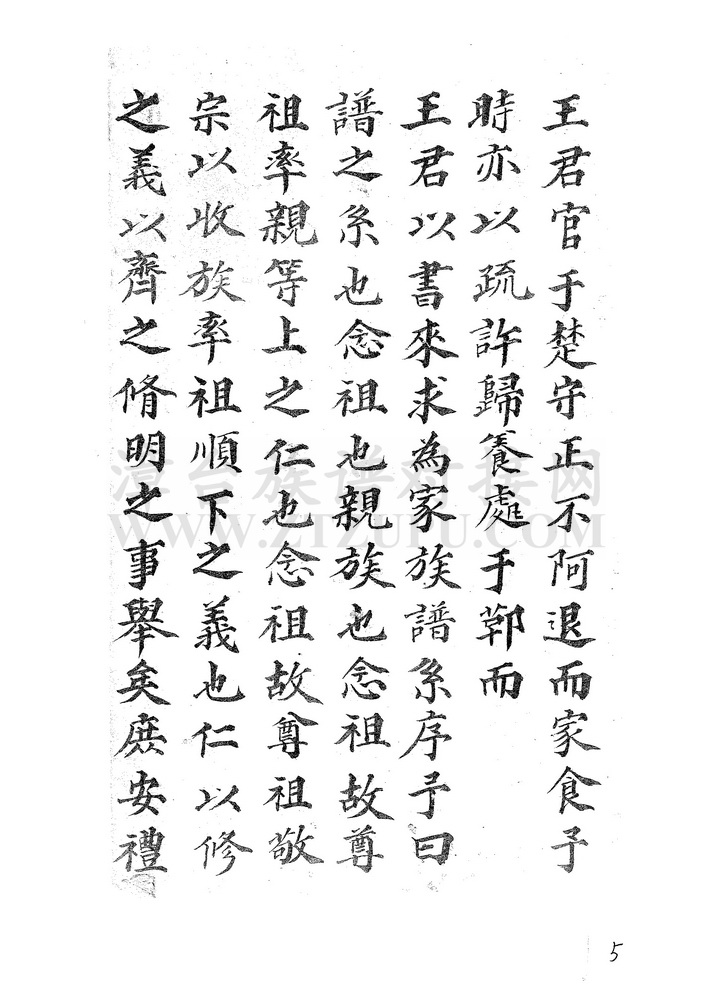 王君官于楚守正不阿退而家食予
時亦以疏許歸養處于鄞而
王君以書來求為家族譜系序予曰
譜之系也念祖也親族也念祖故尊
祖率親等上之仁也念祖故尊祖敬
宗以收族率祖順下之義也仁以修
之義以齊之脩明之事舉矣庶安禮
漳台族谱对接网
WWW.ZTZUPU.COM
5